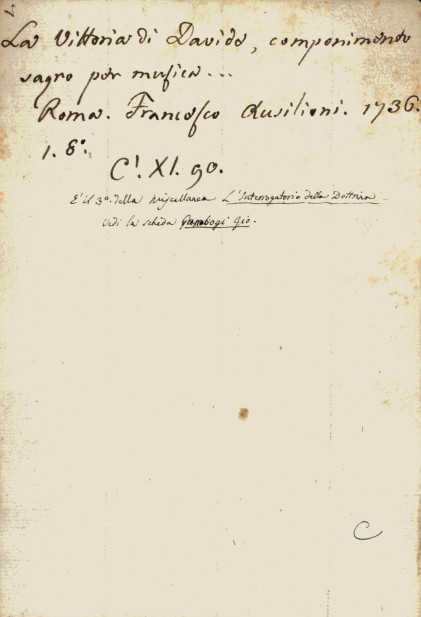 La Vittoria di Davide, componimento
sagro per musica...
Roma. Francesco Ausilioni. 1736.
1. 8º.
C!. XI. 90.
E' il 3º. della Miscellanea L'Interrogatorio della Dottrina
Vedi la scheda Giò.
C